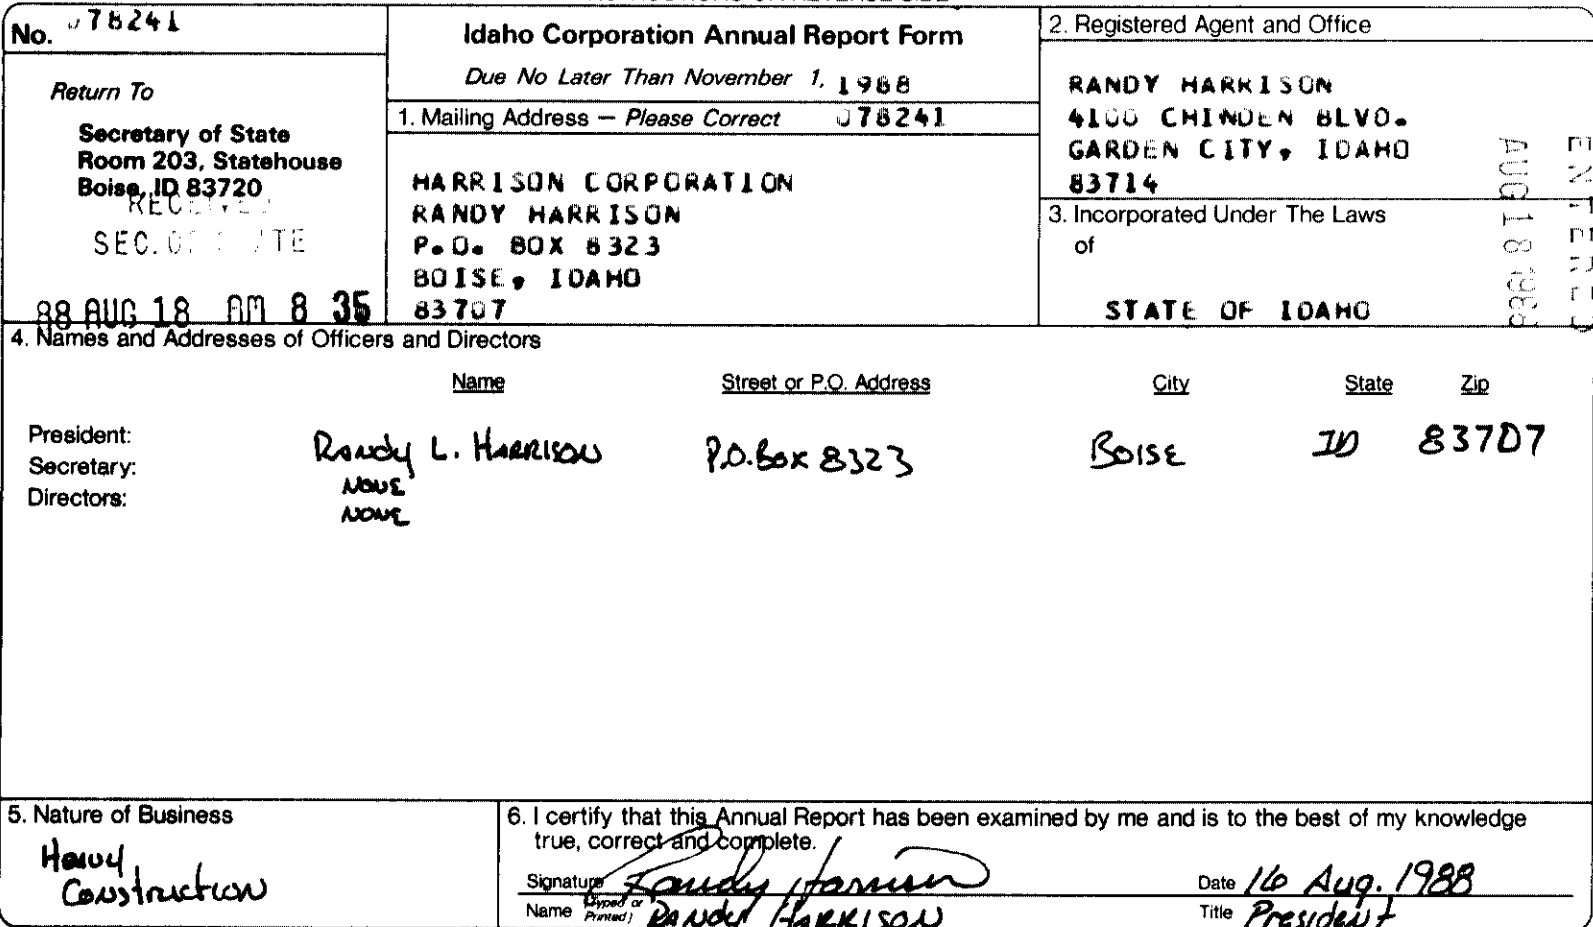 No. 078241
Return To
Secretary of State
Room 203, Statehouse
Boise, ID 83720
SEC.
88 AUG 18 AM 8 35
Idaho Corporation Annual Report Form
Due No Later Than November 1, 1988
1. Mailing Address — Please Correct 078241
HARRISON CORPORATION
RANDY HARRISON
P.O. BOX 8323
BOISE, IDAHO
83707
2. Registered Agent and Office
RANDY HARRISON
4100 CHINDEN BLVD.
GARDEN CITY, IDAHO
83714
3. Incorporated Under The Laws
of
STATE OF IDAHO
ENTERED
AUG 18 1988
4. Names and Addresses of Officers and Directors
Name Street or P.O. Address City State Zip
President: Randy L. Harrison P.O. Box 8323 Boise ID 83707
Secretary: NONE
Directors: NONE
5. Nature of Business
Heavy
Construction
6. I certify that this Annual Report has been examined by me and is to the best of my knowledge
true, correct and complete.
Signature Randy Harrison Date 16 Aug. 1988
Name (Typed or Printed) RANDY HARRISON Title President